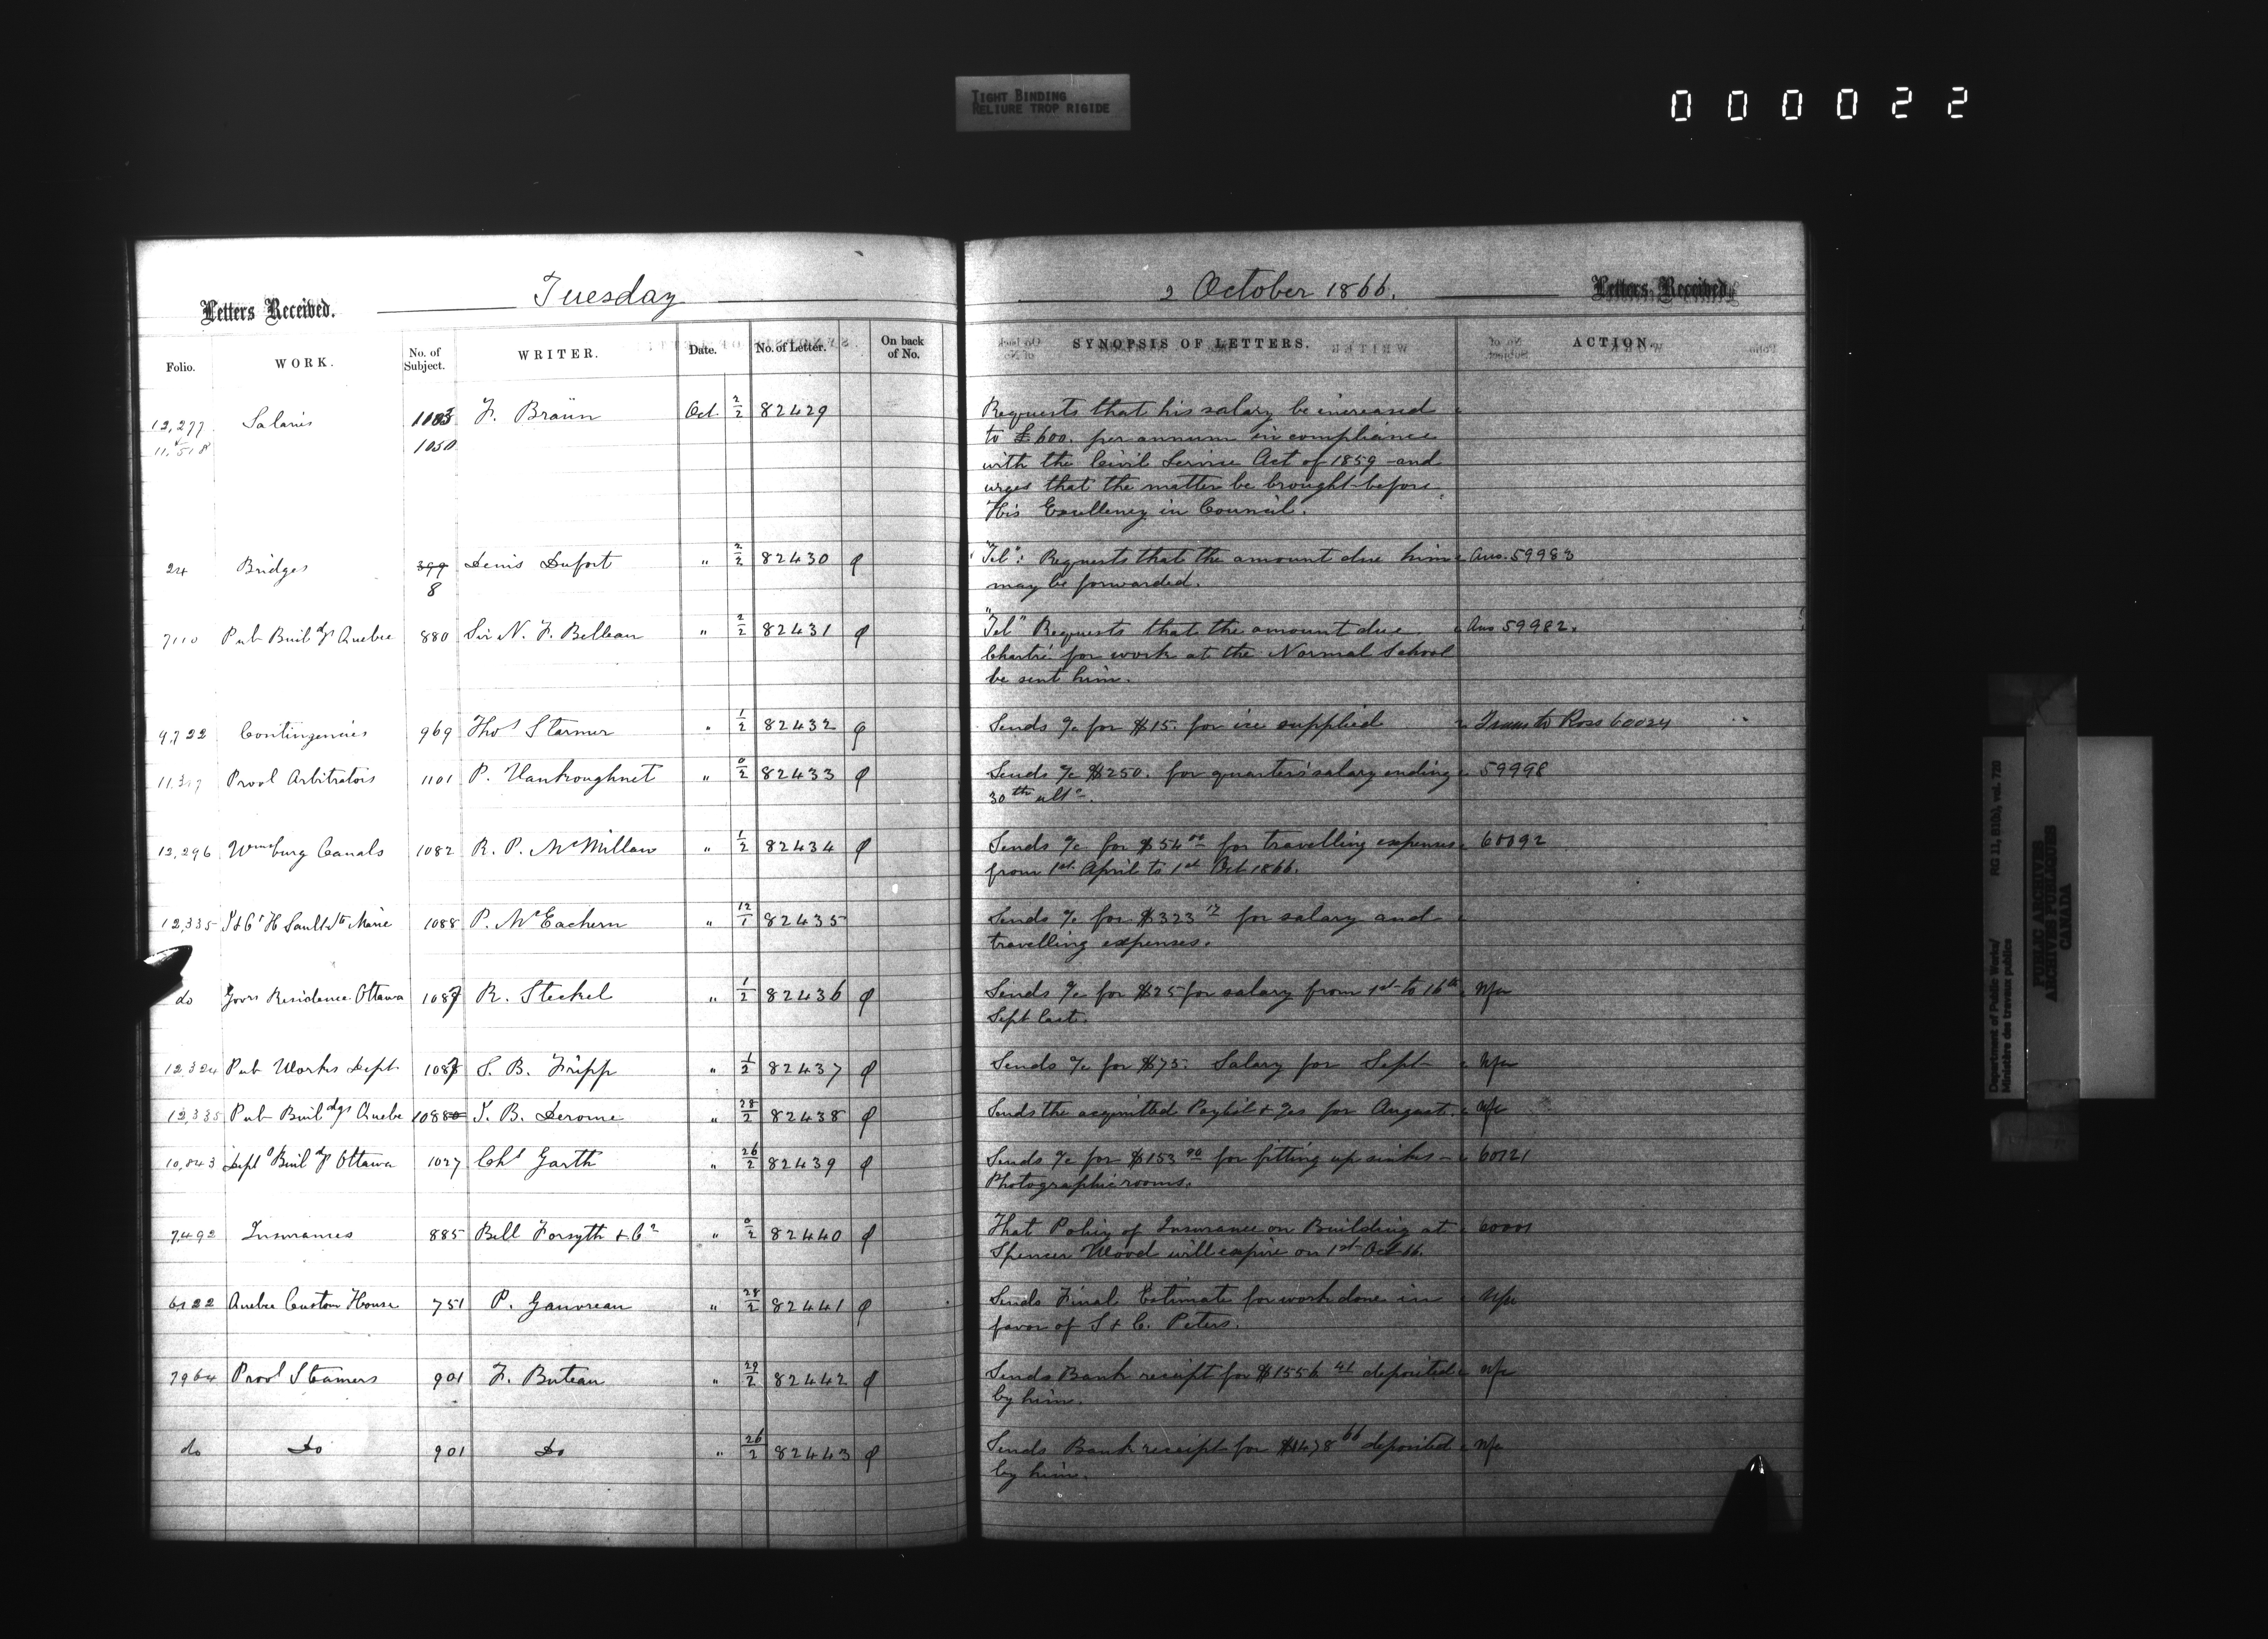 TIGHT BINDING
RELIURE TROP RIGIDE
000022
Letters Received. Tuesday
2 October 1866. Letters Received.
Folio. WORK. No. of Subject. WRITER. Date. No. of Letter. On back of No. SYNOPSIS OF LETTERS. ACTION.
12,277 Salaries 1183 F. Braün Oct 2/2 82429 Requests that his salary be increased
1050 to £600. per annum in compliance
with the Civil Service Act of 1859 and
urges that the matter be brought before
His Excellency in Council.
24 Bridges 399 Denis Dufort " 2/2 82430 "Tel": Requests that the amount due him Ans. 59983
8 may be forwarded.
7110 Pub Buildgs Quebec 880 Sir N. F. Belleau " 2/2 82431 "Tel" Requests that the amount due Ans 59982.
Chartré for work at the Normal School
be sent him.
9,722 Contingencies 969 Thos Starmer " 1/2 82432 Sends a/c for $15. for ice supplied Ross 60024
Provl Arbitrators 1101 P. Vankoughnet " 0/2 82433 Sends a/c $250. for quarter's salary ending 59998
30th ulto.
12,296 Wmsburg Canals 1082 R. P. McMillan " 1/2 82434 Sends a/c for $54 00 for travelling expenses 60092
from 1st April to 1st Oct 1866.
12,335 Sault Ste Marie 1088 P. McEachern " 12/1 82435 Sends a/c for $323 17 for salary and
travelling expenses.
do Govrs Residence Ottawa 1087 R. Steckel " 1/2 82436 Sends a/c for $25 for salary from 1st to 16th N/a
Sept last.
12,324 Pub Works Dept 1087 S. B. Fripp " 1/2 82437 Sends a/c for $75. Salary for Sept N/a
12,335 Pub Buildgs Quebe 1088 J. B. Derome " 28/2 82438 Sends the acquitted Paylist & a/cs for August. N/a
10,843 Deptl Buildgs Ottawa 1027 Chs Garth " 26/2 82439 Sends a/c for $153 90 for fitting up sinks 60121
Photographic rooms.
7,492 Insurances 885 Bell Forsyth & Co " 0/2 82440 That Policy of Insurance on Building at
Spencer Wood will expire on 1st Oct 66.
6122 Quebec Custom House 751 P. Gauvreau " 28/2 82441 Sends Final Estimate for work done in N/a
favor of S & C. Peters.
7964 Provl Steamers 901 F. Buteau " 29/2 82442 Sends Bank receipt for $1556 41 deposited N/a
by him.
do Do 901 Do " 26/2 82443 Sends Bank receipt for $1478 66 deposited N/a
by him.
Department of Public Works/ RG 11, B1(b), vol. 720
Ministère des travaux publics
PUBLIC ARCHIVES
ARCHIVES PUBLIQUES
CANADA